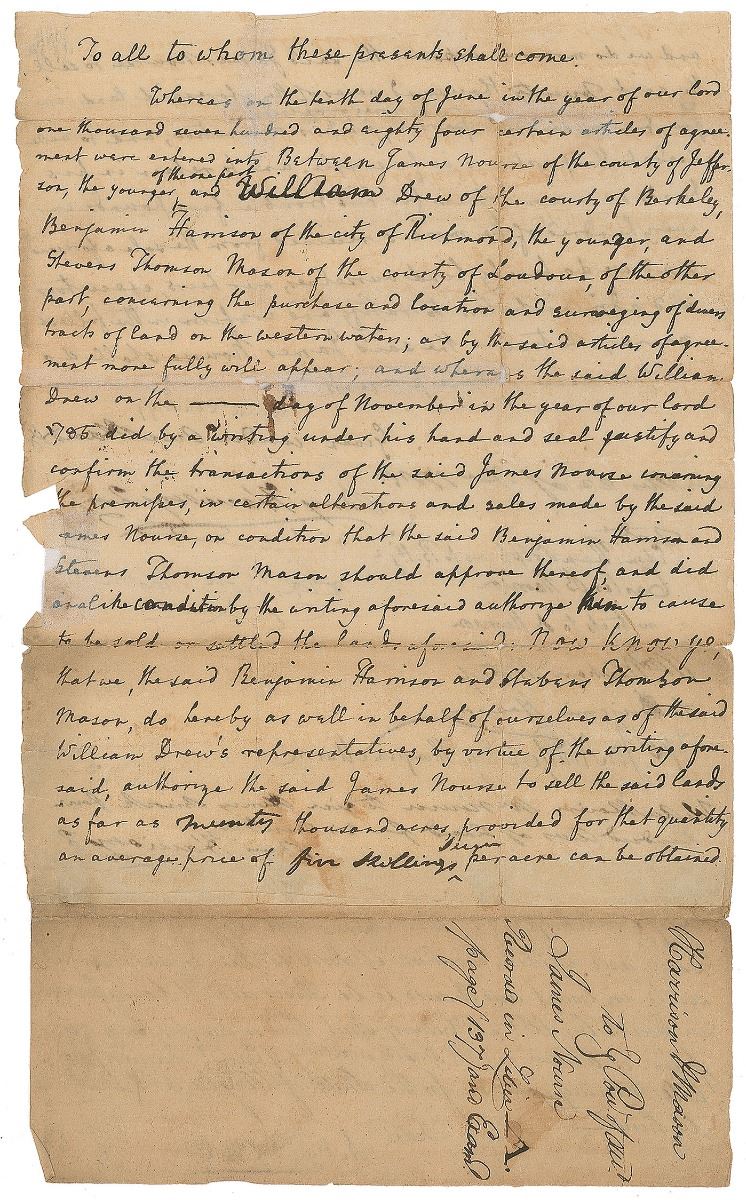 To all to whom these presents shall come.
Whereas on the tenth day of June in the year of our lord
one thousand seven hundred and eighty four certain articles of agree-
ment were entered into Between James Nourse of the county of Jeffer-
son, the younger, of the one part and William Drew of the county of Berkeley,
Benjamin Harrison of the city of Richmond, the younger, and
Stevens Thomson Mason of the county of Loudoun, of the other
part, concerning the purchase and location and surveying of divers
tracts of land on the western waters; as by the said articles of agree-
ment more fully will appear; and whereas the said William
Drew on the —— day of November in the year of our lord
1785 did by a writing under his hand and seal justify and
confirm the transactions of the said James Nourse concerning
the premises, in certain alterations and sales made by the said
ames Nourse, on condition that the said Benjamin Harrison and
Stevens Thomson Mason should approve thereof, and did
on a like condition by the writing aforesaid authorize him to cause
to be sold or settled the lands aforesaid: Now know ye,
that we, the said Benjamin Harrison and Stevens Thomson
Mason, do hereby as well in behalf of ourselves as of the said
William Drew's representatives, by virtue of the writing afore-
said, authorize the said James Nourse to sell the said lands
as far as twenty thousand acres, provided for that quantity
an average price of five shillings Virgin per acre can be obtained.
Harrison & Mason
to } Pow of att
James Nourse
Recorded in Liber A.
page (137) and Exam